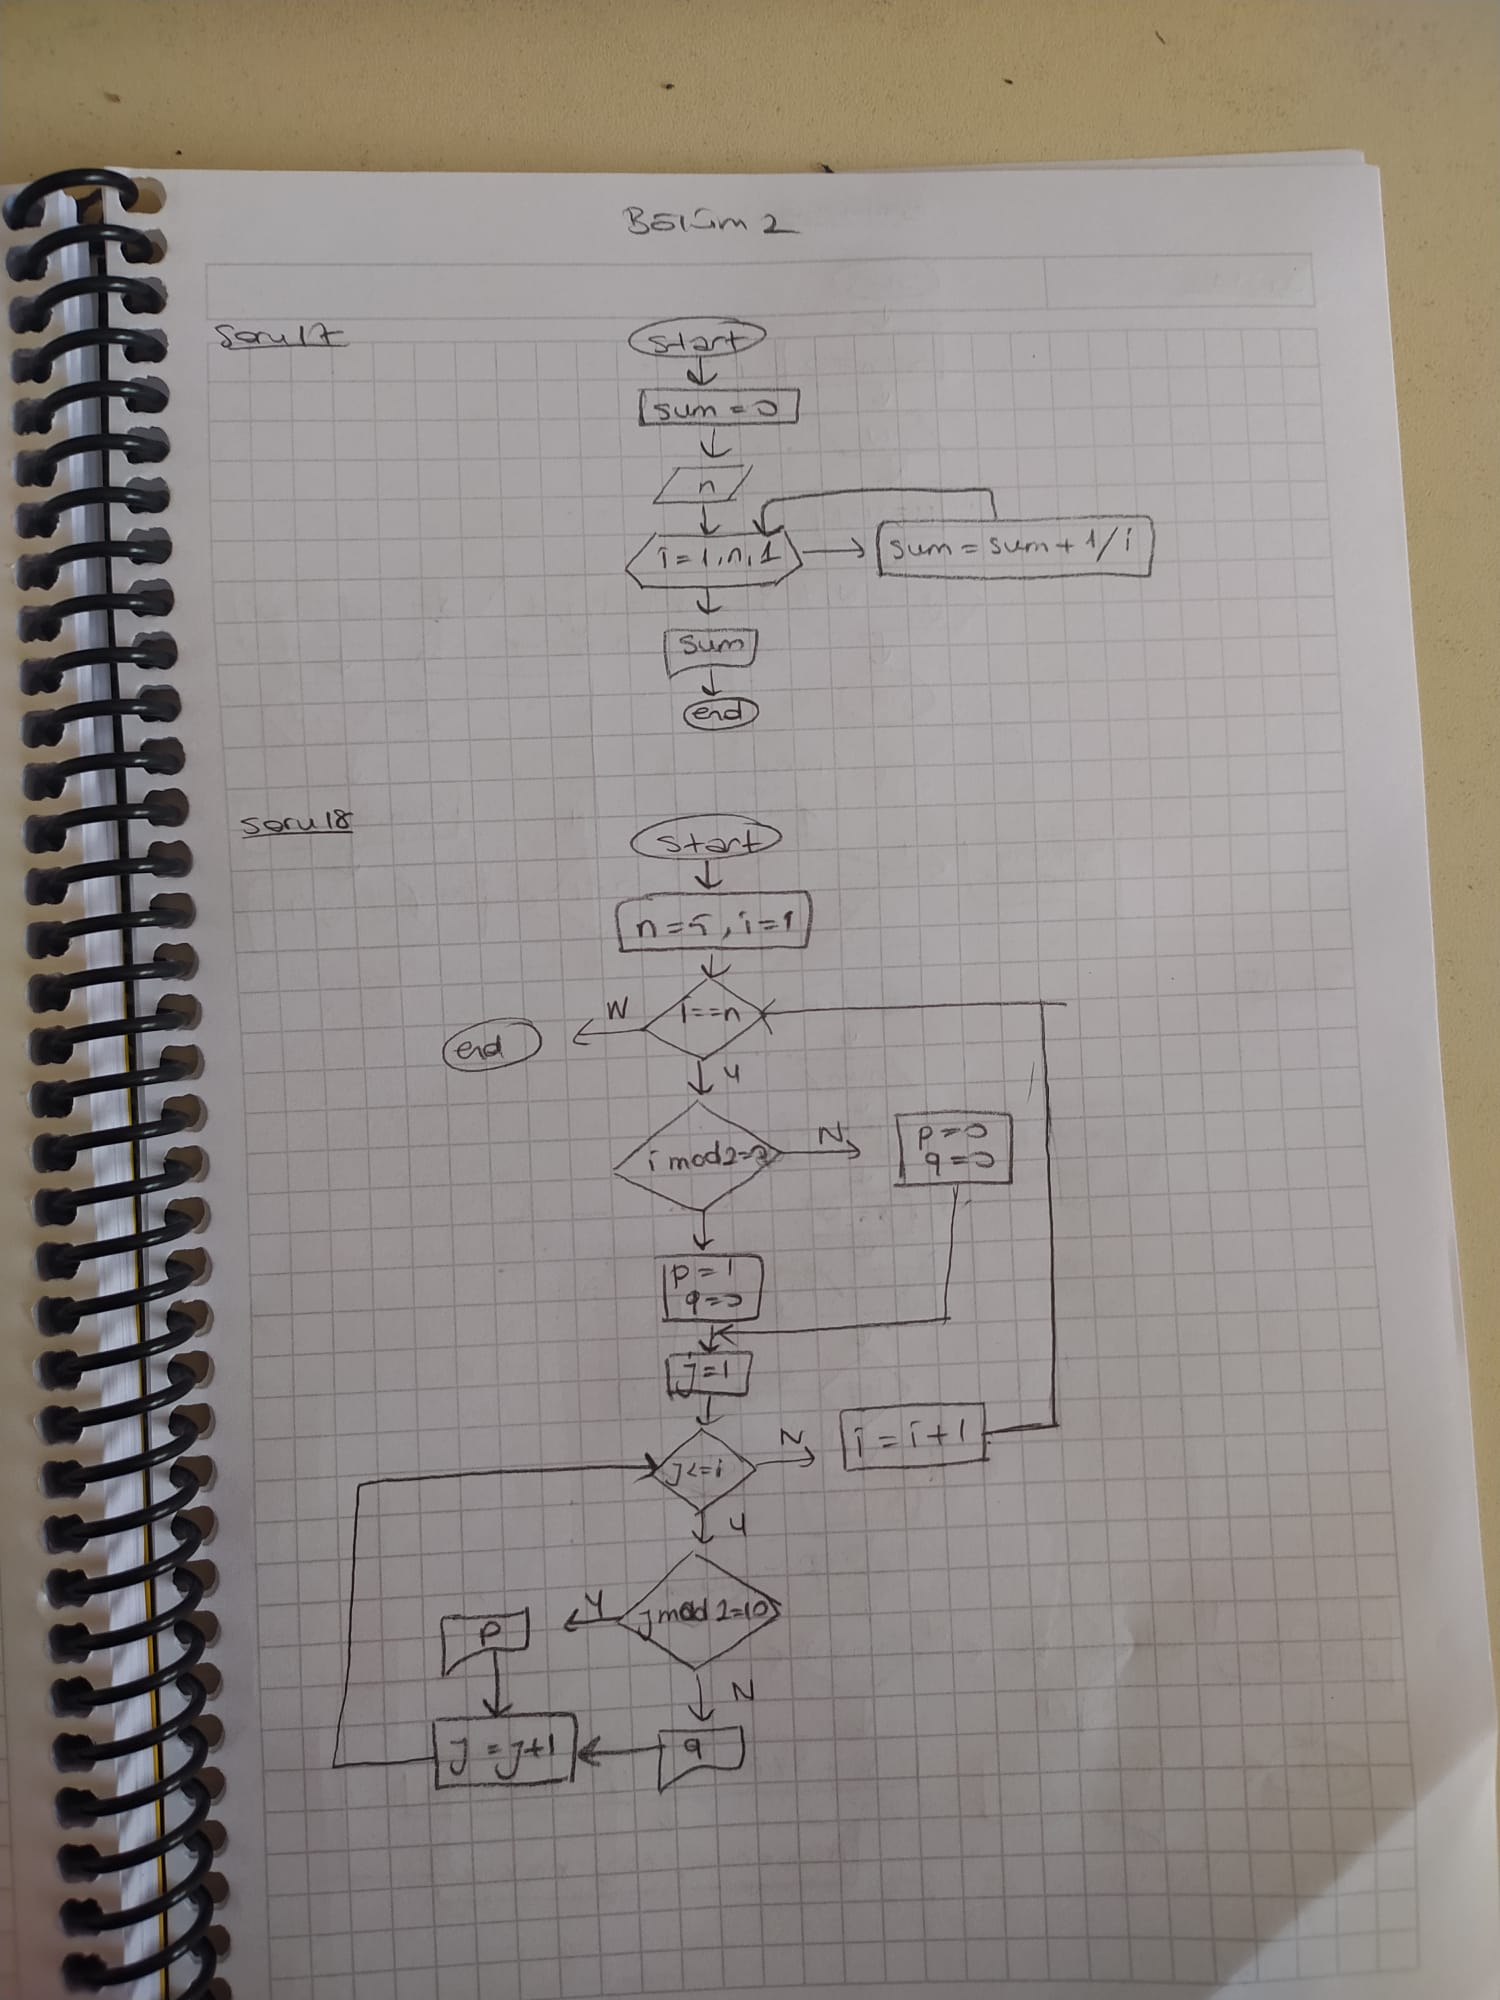 Bölüm 2
Soru 17
start
sum = 0
n
i = 1, n, 1
sum = sum + 1/i
sum
end
Soru 18
start
n = 5, i = 1
i == n
N
end
Y
i mod 2 =
N
p = 0
q = 0
p = 1
q = 0
j = 1
j <= i
N
i = i + 1
Y
j mod 2 =
Y
p
N
j = j + 1
q